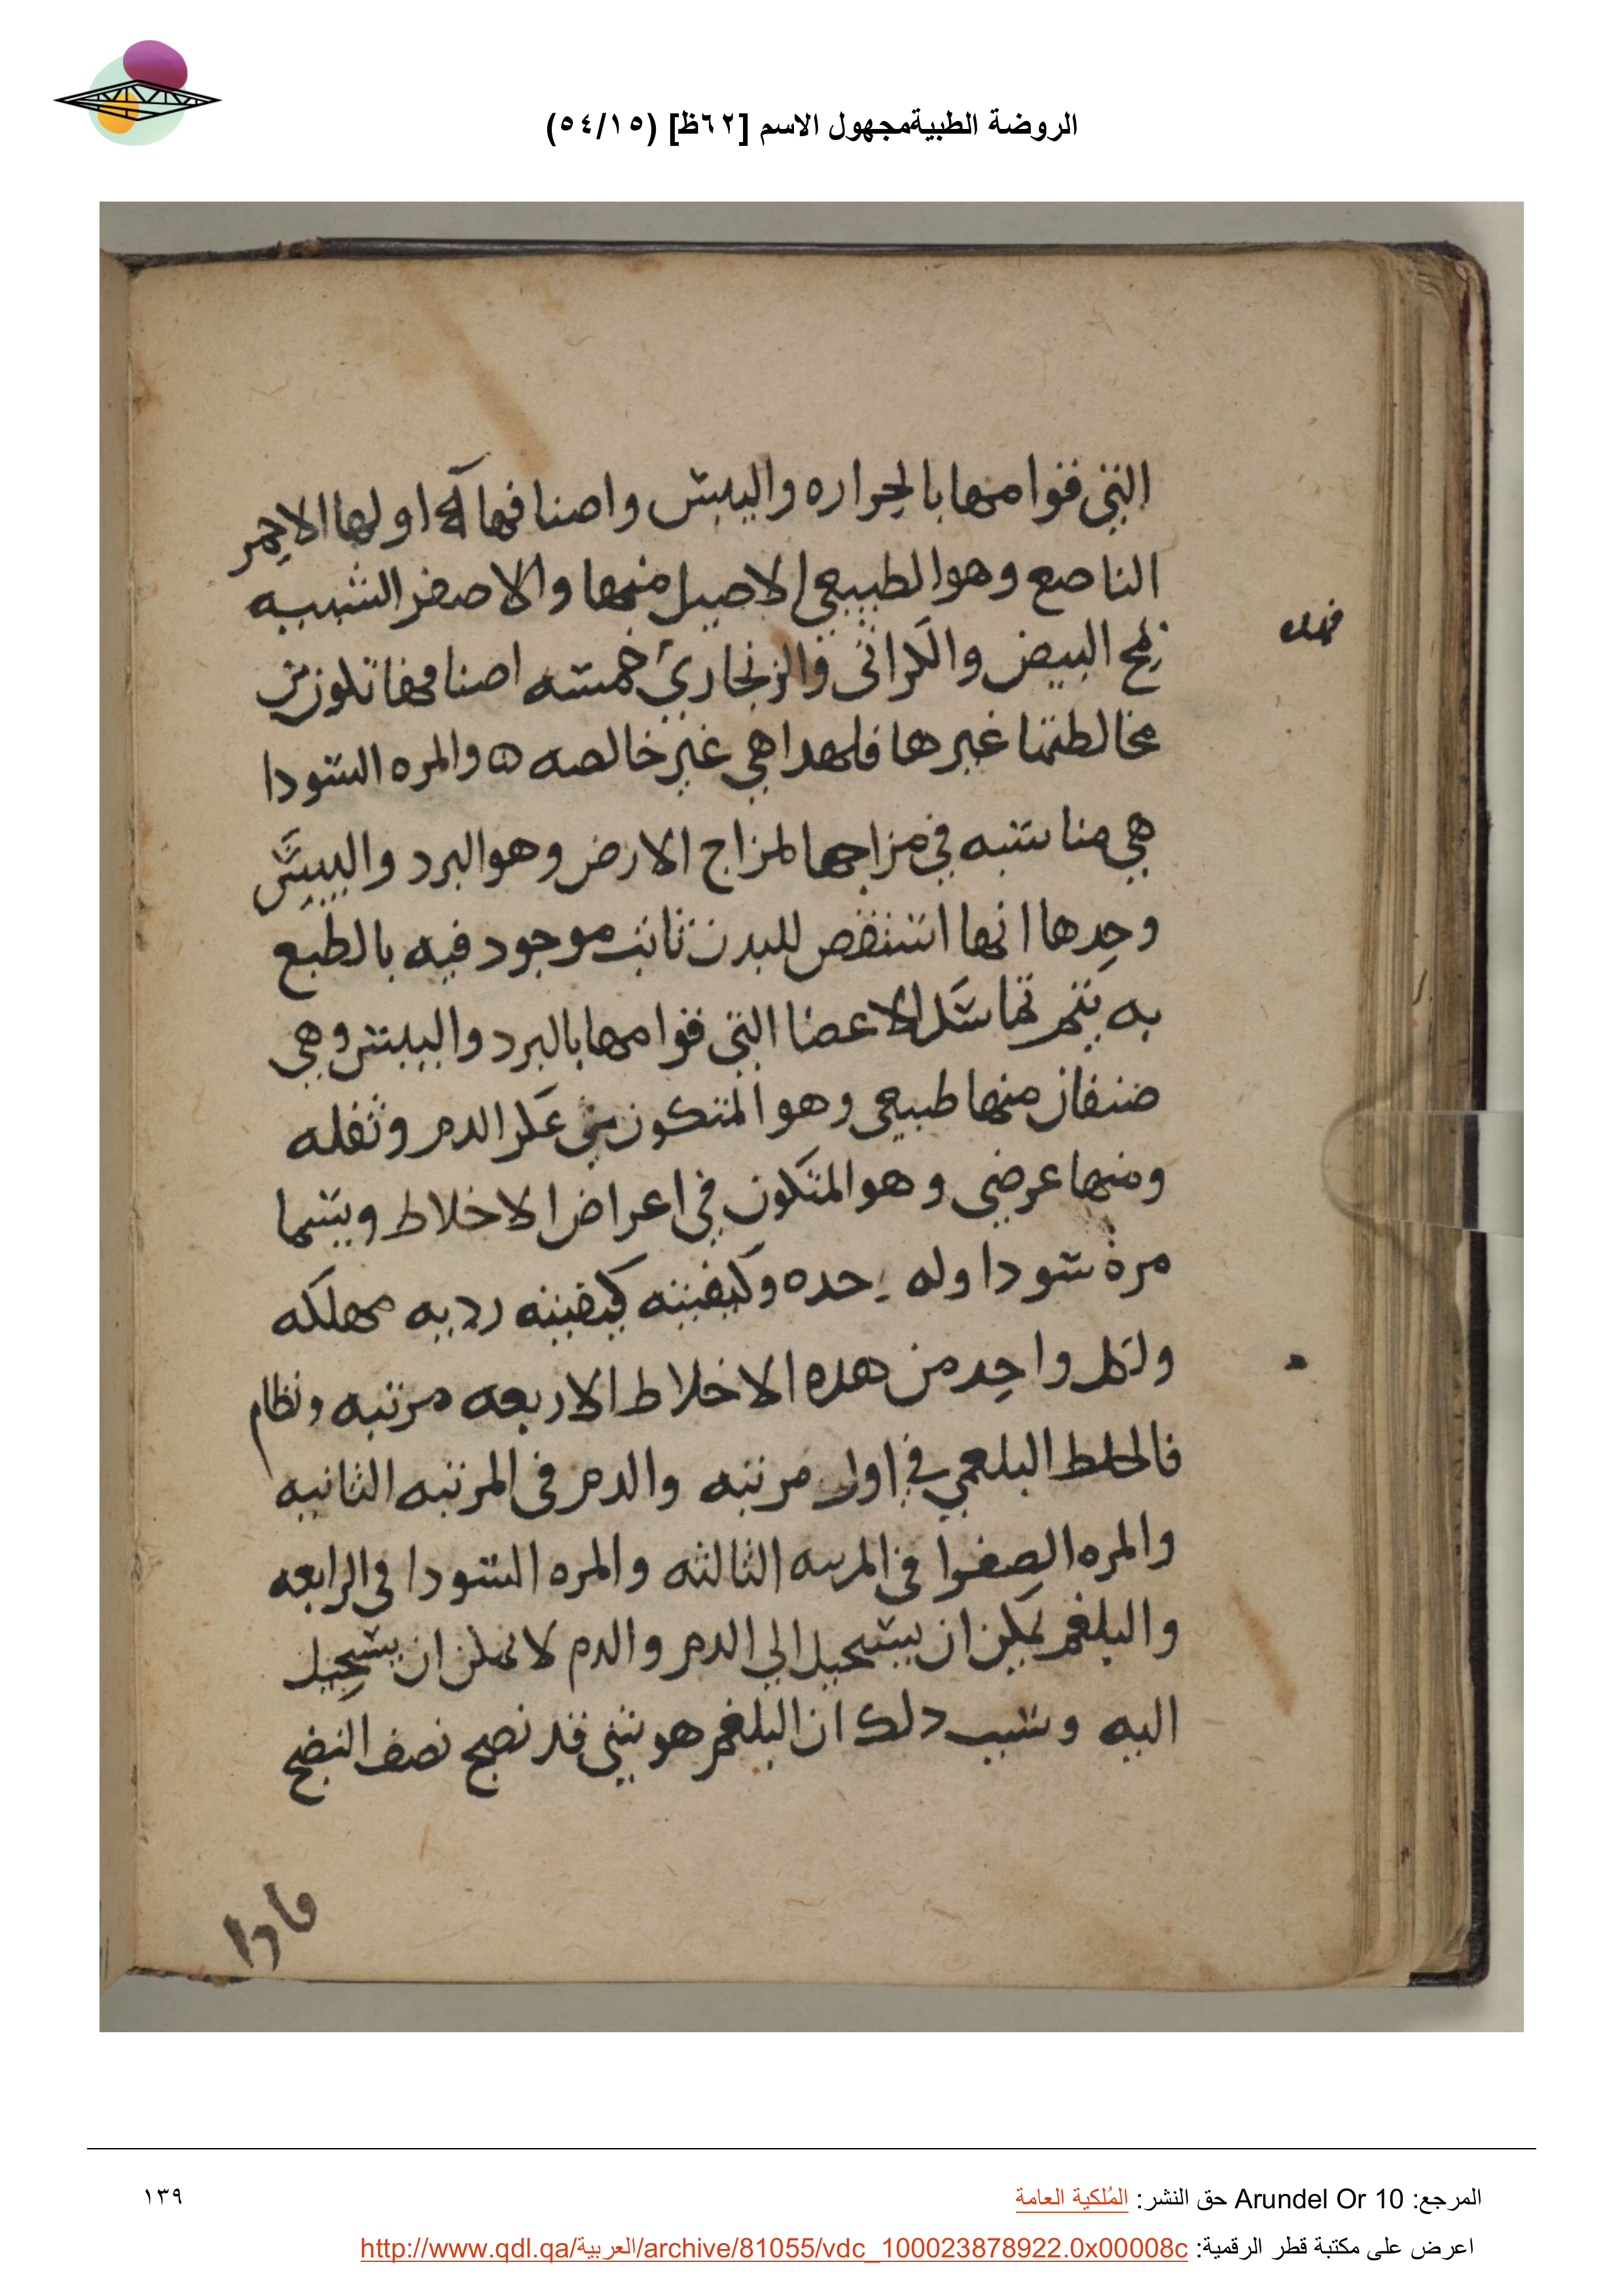 الروضة الطبيةمجهول الاسم [٦٢ظ] (٥٤/١٥)
التي قوامها بالحراره واليبس واصنافها اولها الاحمر
الناصع وهو الطبيعي الاصيل منها والاصفر الشبيه
بمح البيض والكراثي والزنجاري خمسه اصنافها تكون من
مخالطتها غيرها فلهدا هي غير خالصه ه والمره السودا
هي مناسبه في مزاجها لمزاج الارض وهو البرد واليبس
وحدها انها اسنقص للبدن ثابت موجود فيه بالطبع
به يتم تماسك الاعضا التي قوامها بالبرد واليبس وهي
صنفان منها طبيعي وهو المتكون من عكر الدم وثفله
ومنها عرضي وهو المتكون في اعراض الاخلاط ويسما
مرة سودا وله حده وكيفيته كيفيته رديه مهلكه
ولكل واحد من هده الاخلاط الاربعه مرتبه ونظام
فالخلط البلغمي في اول مرتبه والدم في المرتبه الثانيه
والمره الصفرا في المرتبه الثالثه والمره السودا في الرابعه
والبلغم يمكن ان يستحيل الي الدم والدم لا يمكن ان يستحيل
اليه وسبب دلك ان البلغم هو شي قد نضج نصف النضج
فادا
المرجع: Arundel Or 10 حق النشر: المُلكية العامة
١٣٩
اعرض على مكتبة قطر الرقمية: http://www.qdl.qa/العربية/archive/81055/vdc_100023878922.0x00008c